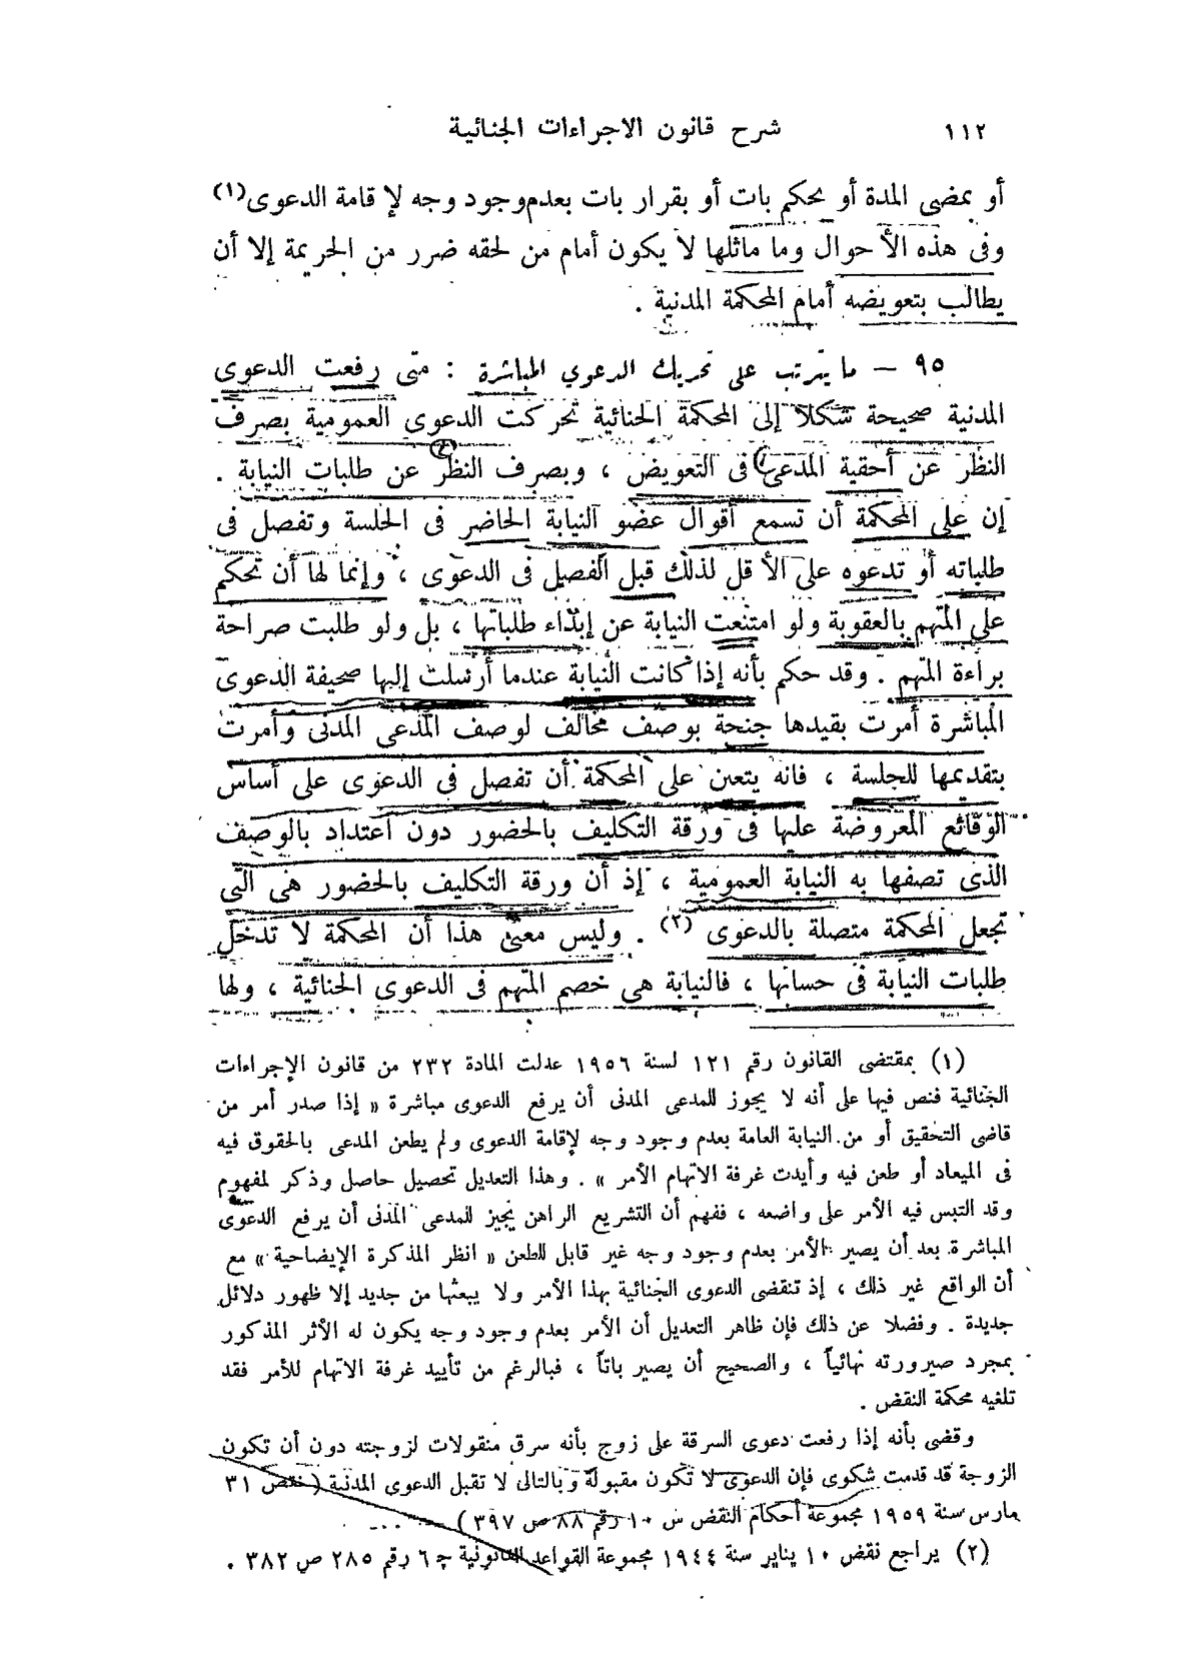 ١١٢ شرح قانون الاجراءات الجنائية
أو بمضى المدة أو بحكم بات أو بقرار بات بعدم وجود وجه لإقامة الدعوى (١)
وفى هذه الأحوال وما ماثلها لا يكون أمام من لحقه ضرر من الجريمة إلا أن
يطالب بتعويضه أمام المحكمة المدنية .
٩٥ – ما يترتب على تحريك الدعوي المباشرة : متى رفعت الدعوى
المدنية صحيحة شكلا إلى المحكمة الجنائية تحركت الدعوى العمومية بصرف
النظر عن أحقية المدعى فى التعويض ، وبصرف النظر عن طلبات النيابة .
إن على المحكمة أن تسمع أقوال عضو النيابة الحاضر فى الجلسة وتفصل فى
طلباته أو تدعوه على الأقل لذلك قبل الفصل فى الدعوى ، وإنما لها أن تحكم
على المتهم بالعقوبة ولو امتنعت النيابة عن إبداء طلباتها ، بل ولو طلبت صراحة
براءة المتهم . وقد حكم بأنه إذا كانت النيابة عندما أرسلت إليها صحيفة الدعوى
المباشرة أمرت بقيدها جنحة بوصف مخالف لوصف المدعى المدنى وأمرت
بتقديمها للجلسة ، فانه يتعين على المحكمة أن تفصل فى الدعوى على أساس
الوقائع المعروضة عليها فى ورقة التكليف بالحضور دون اعتداد بالوصف
الذى تصفها به النيابة العمومية ، إذ أن ورقة التكليف بالحضور هى التى
تجعل المحكمة متصلة بالدعوى (٢) . وليس معنى هذا أن المحكمة لا تدخل
طلبات النيابة فى حسابها ، فالنيابة هى خصم المتهم فى الدعوى الجنائية ، ولها
(١) بمقتضى القانون رقم ١٢١ لسنة ١٩٥٦ عدلت المادة ٢٣٢ من قانون الإجراءات
الجنائية فنص فيها على أنه لا يجوز للمدعى المدنى أن يرفع الدعوى مباشرة « إذا صدر أمر من
قاضى التحقيق أو من النيابة العامة بعدم وجود وجه لإقامة الدعوى ولم يطعن المدعى بالحقوق فيه
فى الميعاد أو طعن فيه وأيدت غرفة الاتهام الأمر » . وهذا التعديل تحصيل حاصل وذكر لمفهوم
وقد التبس فيه الأمر على واضعه ، ففهم أن التشريع الراهن يجيز للمدعى المدنى أن يرفع الدعوى
المباشرة بعد أن يصير الأمر بعدم وجود وجه غير قابل للطعن « انظر المذكرة الإيضاحية » مع
أن الواقع غير ذلك ، إذ تنقضى الدعوى الجنائية بهذا الأمر ولا يبعثها من جديد إلا ظهور دلائل
جديدة . وفضلا عن ذلك فإن ظاهر التعديل أن الأمر بعدم وجود وجه يكون له الأثر المذكور
بمجرد صيرورته نهائياً ، والصحيح أن يصير باتاً ، فبالرغم من تأييد غرفة الاتهام للأمر فقد
تلغيه محكمة النقض .
وقضى بأنه إذا رفعت دعوى السرقة على زوج بأنه سرق منقولات لزوجته دون أن تكون
الزوجة قد قدمت شكوى فإن الدعوى لا تكون مقبولة وبالتالى لا تقبل الدعوى المدنية ( نقض ٣١
مارس سنة ١٩٥٩ مجموعة أحكام النقض س ١٠ رقم ٨٨ ص ٣٩٧ )
(٢) يراجع نقض ١٠ يناير سنة ١٩٤٤ مجموعة القواعد القانونية ج ٦ رقم ٢٨٥ ص ٣٨٢ .